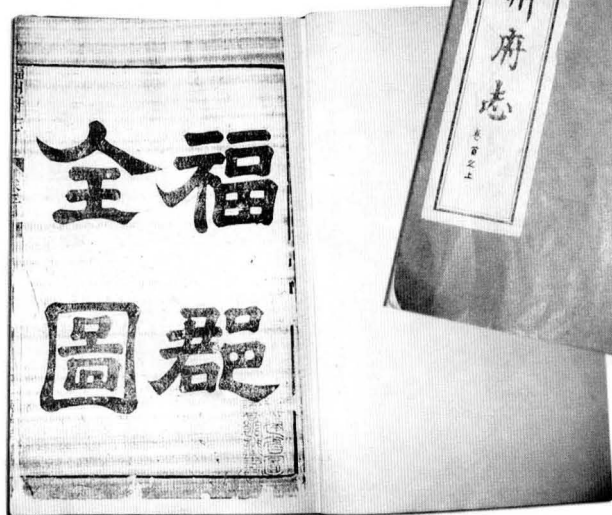 福郡
全圖
州府志
卷首之上